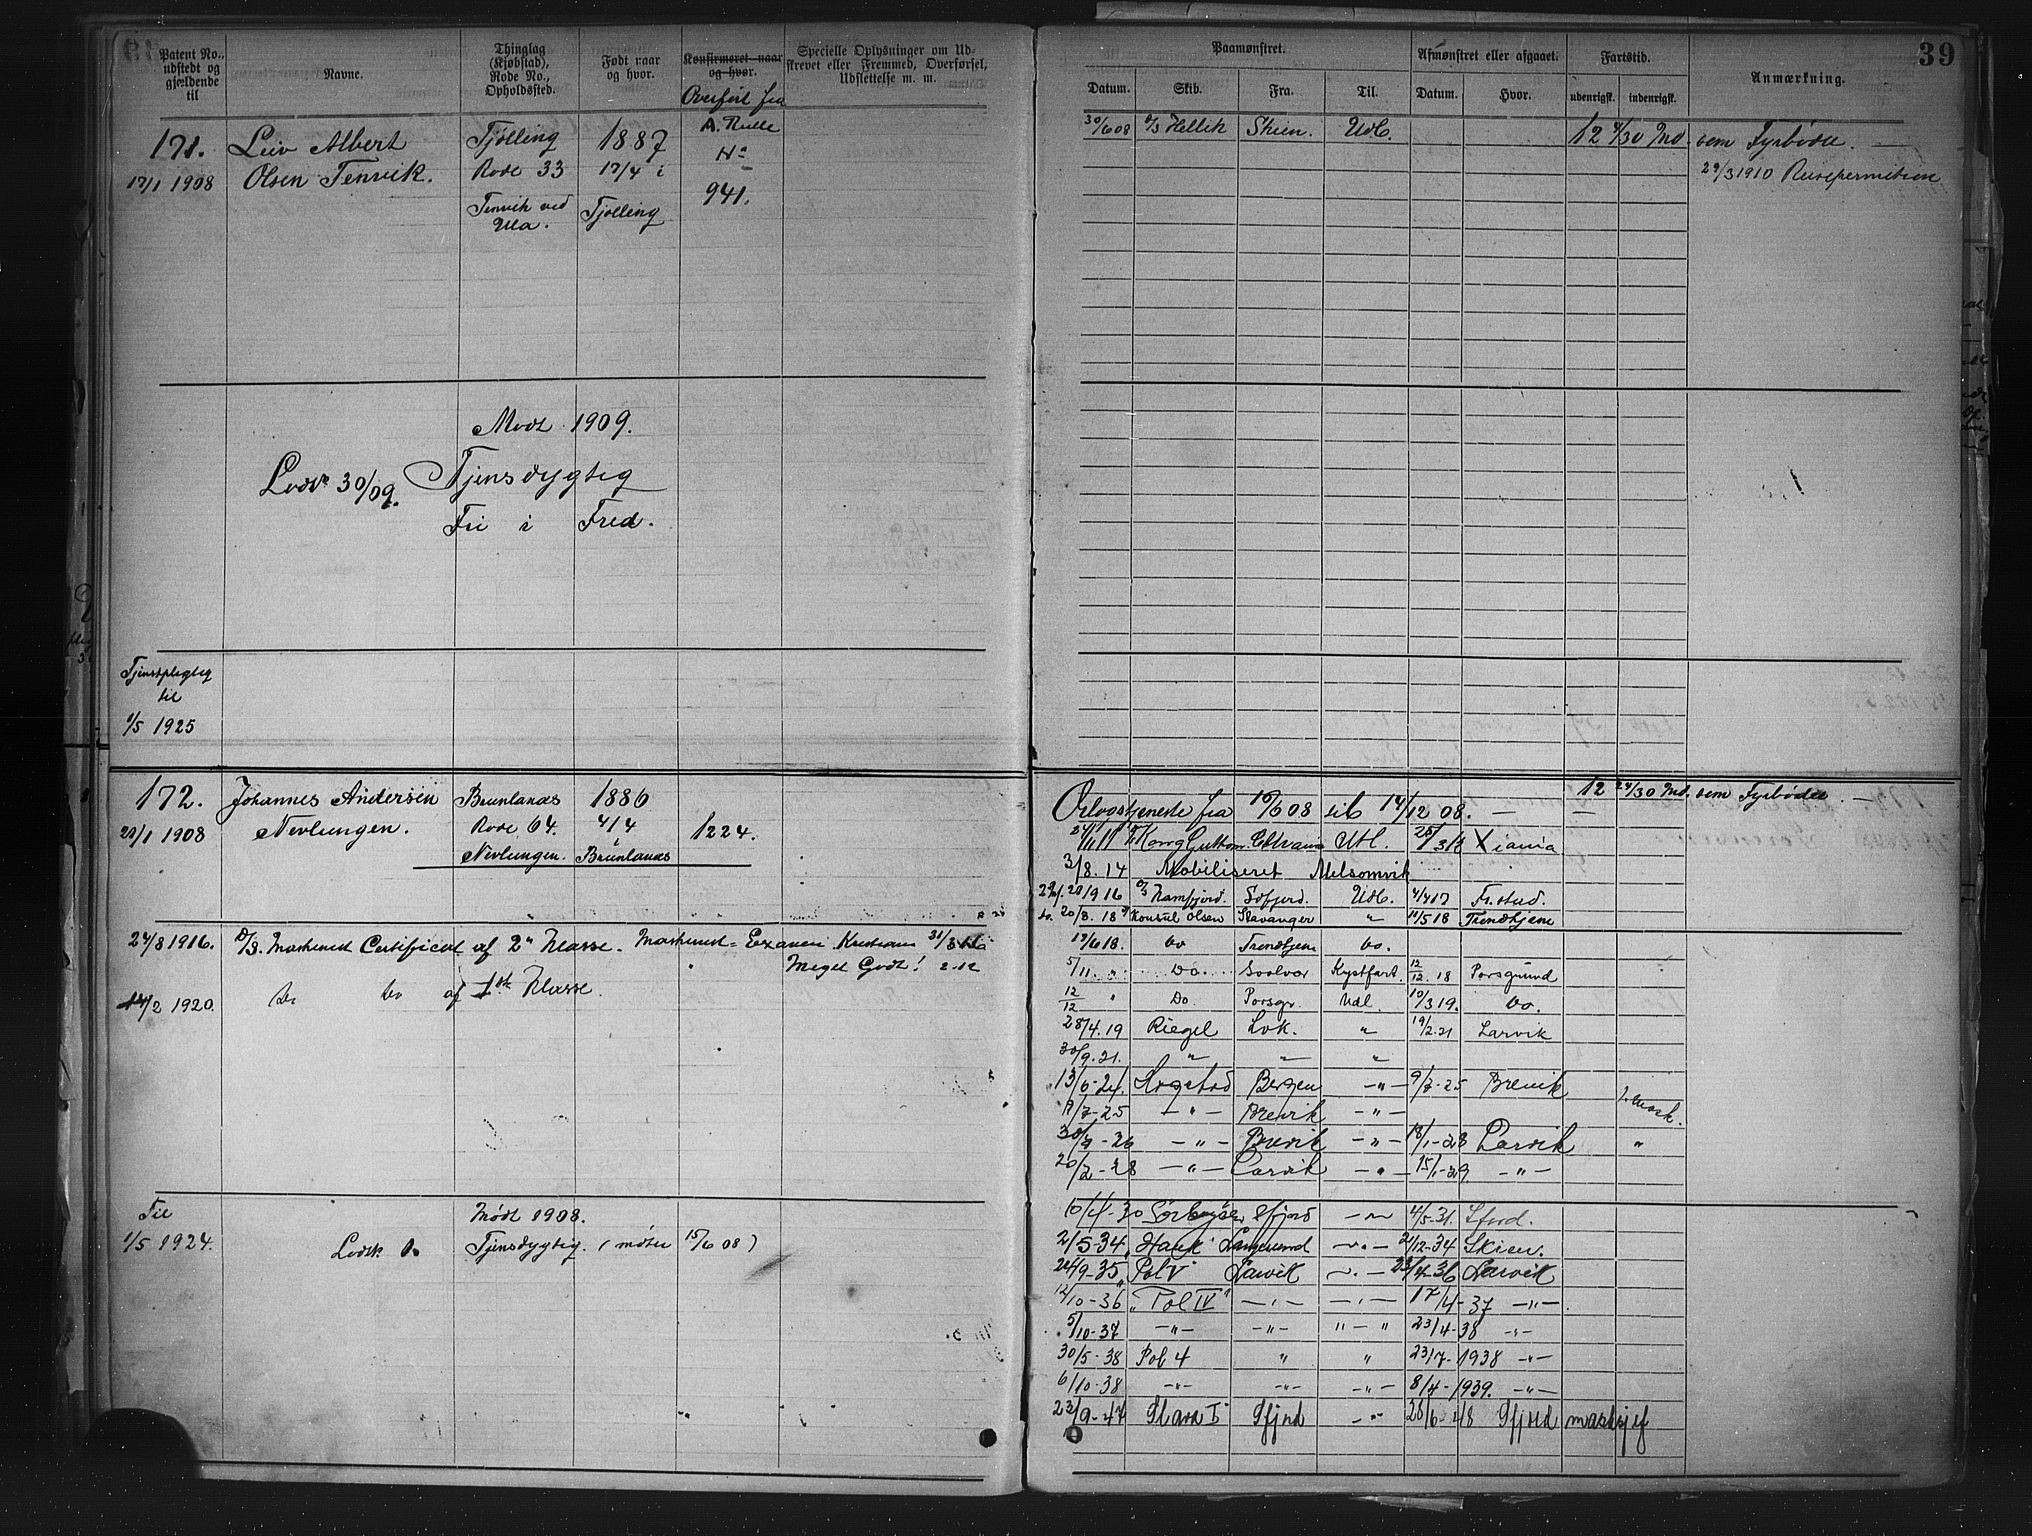 39
Patent No., udstedt og gjældende til
Navne.
Thinglag (Kjøbstad), Rode No., Opholdsted.
Født naar og hvor.
Konfirmeret naar og hvor.
Overført fra
Specielle Oplysninger om Udskrevet eller Fremmed, Overførsel, Udslettelse m. m.
Paamønstret.
Afmønstret eller afgaaet.
Fartstid.
Anmærkning.
Datum. Skib. Fra. Til. Datum. Hvor. udenrigsk. indenrigsk.
171. Leiv Albert Tjølling 1887 A. Rulle
17/1 1908 Olsen Tenvik. Rode 33 17/4 i No
Tenvik ved Tjølling 941.
Ula.
30/6 08 D/S Hellik Skien. Udl. 12 9/30 Md som Fyrbøder.
29/3 1910 Reisepermission
Mødt 1909.
Lodsk 30/09. Tjensdygtig
Fri i Fred.
Tjenstpligtig
til
1/5 1925
172. Johannes Andersen Brunlanæs 1886
21/1 1908 Nevlungen. Rode 64. 4/4 1224.
Nevlungen. i Brunlanæs
24/8 1916. D/S. Maskinist Certificat af 2n Klasse. Maskinist-Examen Kristiania 31/3
Meget Godt! 2.12
14/2 1920. Do Do af 1ste Klasse.
Til Mødt 1908.
1/5 1924. Lodsk Tjensdygtig. (møter 15/6 08)
12 24/30 Md. som Fyrbøder.
Orlogstjeneste fra 15/6 08 til 14/12 08.
Kong Guttorm Christiania Udl. 25/3 12 Xiania
3/8. 14 Mobiliseret Melsomvik
1916 D/S Ramfjord. Udl. 4/4 17 Fr.stad.
20/3. 18 Konsul Olsen Stavanger " 14/5 18 Trondhjem
17/6 18. Do Trondhjem Do.
5/11. " Do. Svolvær Kystfart 12/12 18 Porsgrund
12/12 " Do Porsgr. Udl. 10/3 19. Do.
28/4. 19 Riegel Lvk. " 19/2. 21 Larvik
30/9. 21. " " "
13/6-24. Kogstad Bergen -"- 9/7-25 Brevik
/7-25 -"- Brevik -"- 2. mask.
30/7-26 -"- Brevik -"- 18/1-28 Larvik "
20/2-28 -"- Larvik -"- 15/1-29 -"-
10/4-30 Sørbyøen Sfjord -"- 4/5-31. Sfjord.
2/5-34 "Hauk" Langesund -"- 21/12-34 Skien.
24/9-35 "Pol V" Larvik -"- 23/4-36 Larvik
12/10-36 "Pol IV" -"- -"- 17/4-37 -"-
5/10-37 -"- -"- "-" 23/4-38 -"-
30/5-38 Pol 4 " " 23/7-1938 -"-
6/10-38 -"- -"- -"- 8/4-1939. -"-
23/9-47 Thara I Sfjord -"- 28/6-48 Sfjord masksjef